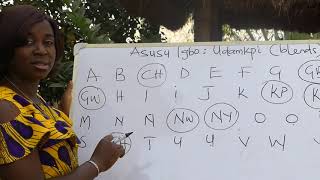 Asụsụ Igbo: Udamkpi (blends
A B CH D E F G
GW H I Ị J K KP
M N Ṅ NW NY O Ọ
S T U Ụ V W